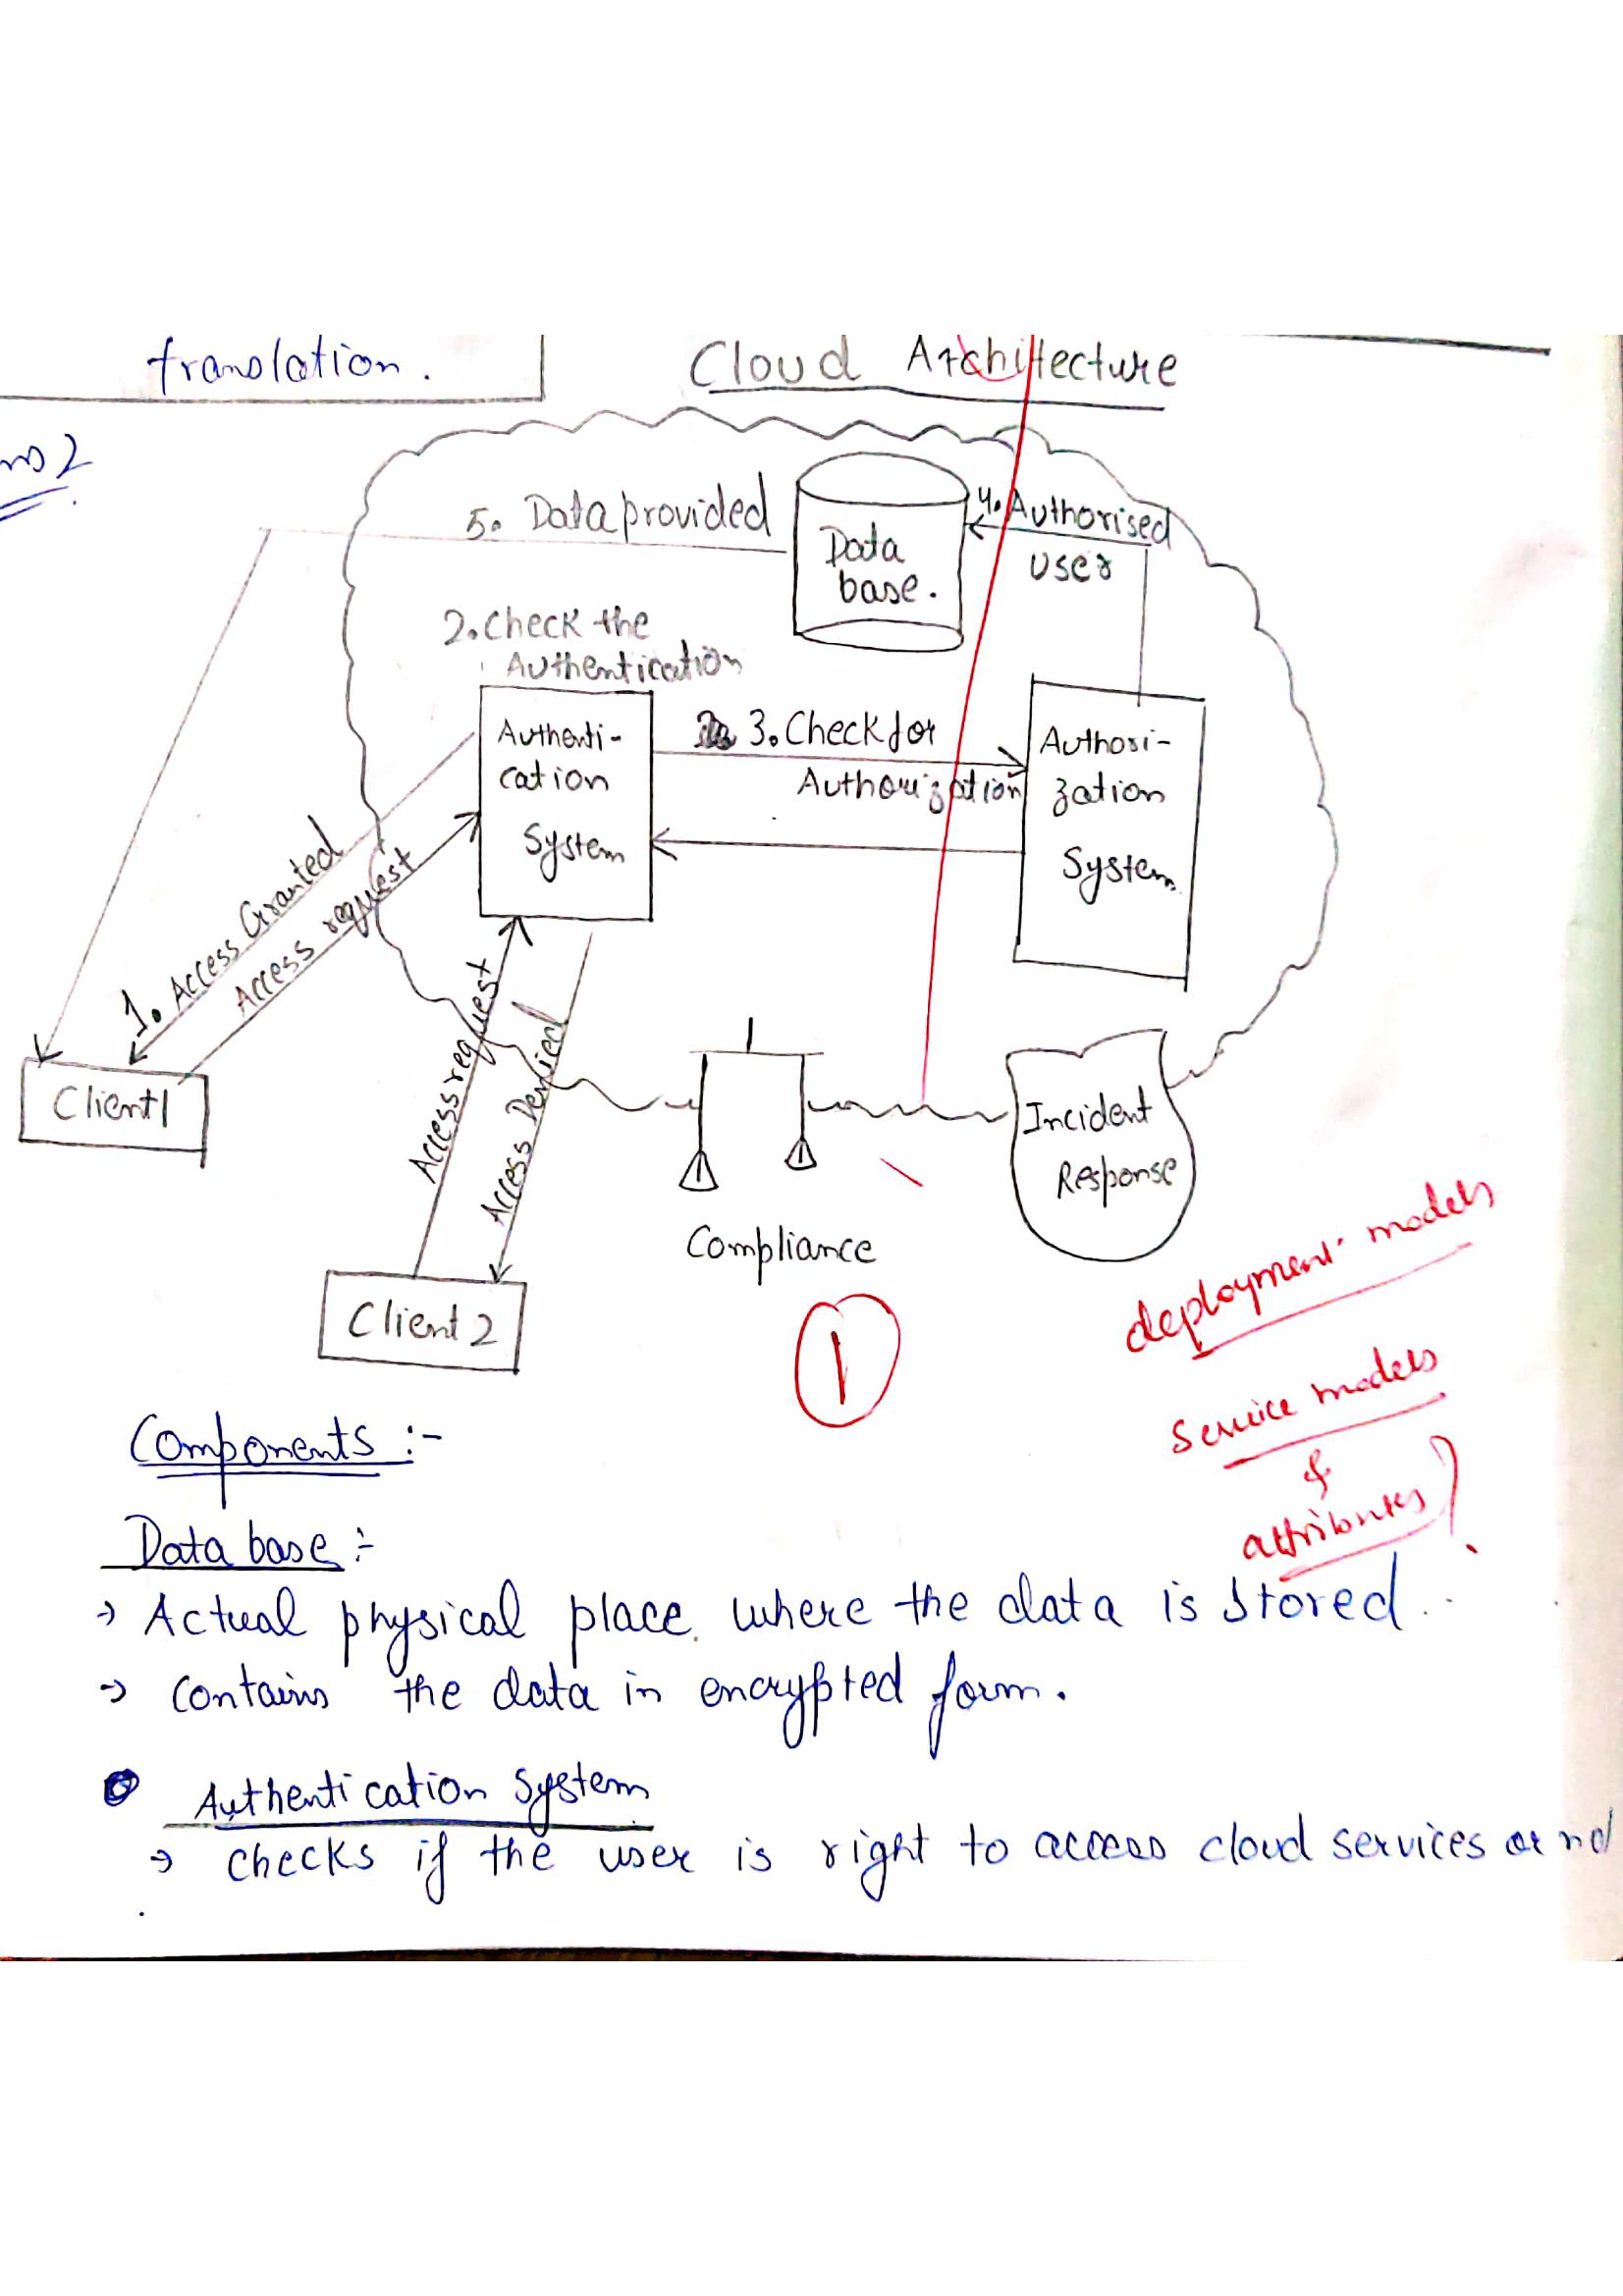 translation.
Cloud Architecture
Ans 2
5. Data provided
Data
base.
4. Authorised
user
2. Check the
Authentication
Authenti-
cation
System
3. Check for
Authorization
Authori-
zation
System
1. Access Granted
Access request
Access request
Access Denied
Client 1
Client 2
Compliance
Incident
Response
1
deployment models
Service models
&
attributes ?
Components :-
Data base :-
→ Actual physical place where the data is stored.
→ contains the data in encrypted form.
Authentication System
→ checks if the user is right to access cloud services or not